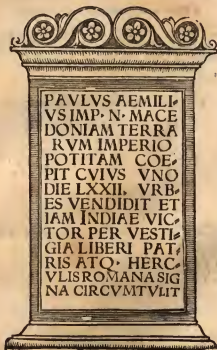 PAVLVS AEMILI⸗
VS IMP· N· MACE
DONIAM TERRA
RVM IMPERIO
POTITAM COE⸗
PIT CVIVS VNO
DIE LXXII. VRB⸗
ES VENDIDIT ET
IAM INDIAE VIC⸗
TOR PER VESTI⸗
GIA LIBERI PAT⸗
RIS ATQ· HERC⸗
VLIS ROMANA SIG
NA CIRCVMTVLIT